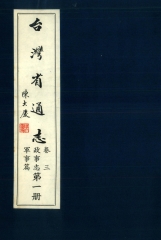 台灣省通志
卷三
政事志
軍事篇
第一册
陳大慶